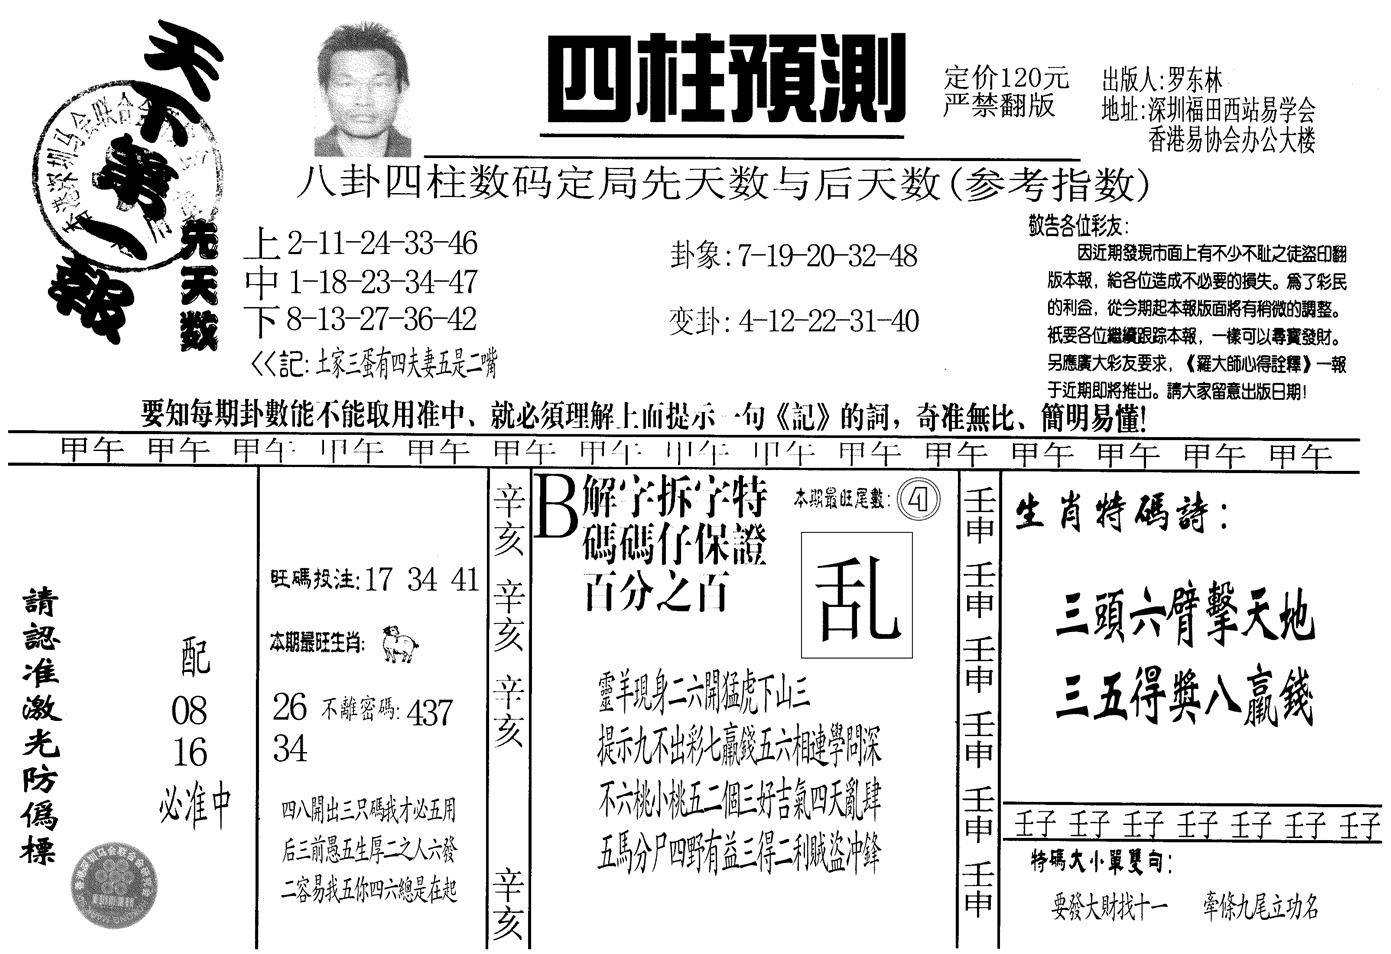 天下第一報
四柱預測
定价120元
严禁翻版
出版人:罗东林
地址:深圳福田西站易学会
香港易协会办公大楼
八卦四柱数码定局先天数与后天数(参考指数)
先天数
上 2-11-24-33-46
中 1-18-23-34-47
下 8-13-27-36-42
<<記: 土家三蛋有四夫妻五是二嘴
卦象: 7-19-20-32-48
变卦: 4-12-22-31-40
敬告各位彩友:
因近期發現市面上有不少不耻之徒盜印翻
版本報，給各位造成不必要的損失。爲了彩民
的利益，從今期起本報版面將有稍微的調整。
衹要各位繼續跟踪本報，一樣可以尋寶發財。
另應廣大彩友要求，《羅大師心得詮釋》一報
于近期即將推出。請大家留意出版日期!
要知每期卦數能不能取用准中、就必須理解上面提示一句《記》的詞，奇准無比、簡明易懂!
甲午 甲午 甲午 甲午 甲午 甲午 甲午 甲午 甲午 甲午 甲午 甲午 甲午 甲午 甲午
請認准激光防僞標
配
08
16
必准中
旺碼投注:17 34 41
本期最旺生肖:
26 不離密碼: 437
34
四八開出三只碼我才必五用
后三前愚五生厚二之人六發
二容易我五你四六總是在起
辛亥 辛亥 辛亥 辛亥
B
解字拆字特
碼碼仔保證
百分之百
本期最旺尾數: ④
乱
靈羊現身二六開猛虎下山三
提示九不出彩七贏錢五六相連學問深
不六桃小桃五二個三好吉氣四天亂肆
五馬分尸四野有益三得二利賊盜冲鋒
壬申 壬申 壬申 壬申 壬申 壬申
生肖特碼詩:
三頭六臂擊天地
三五得獎八贏錢
壬子 壬子 壬子 壬子 壬子 壬子 壬子
特碼大小單雙句:
要發大財找十一 牽條九尾立功名